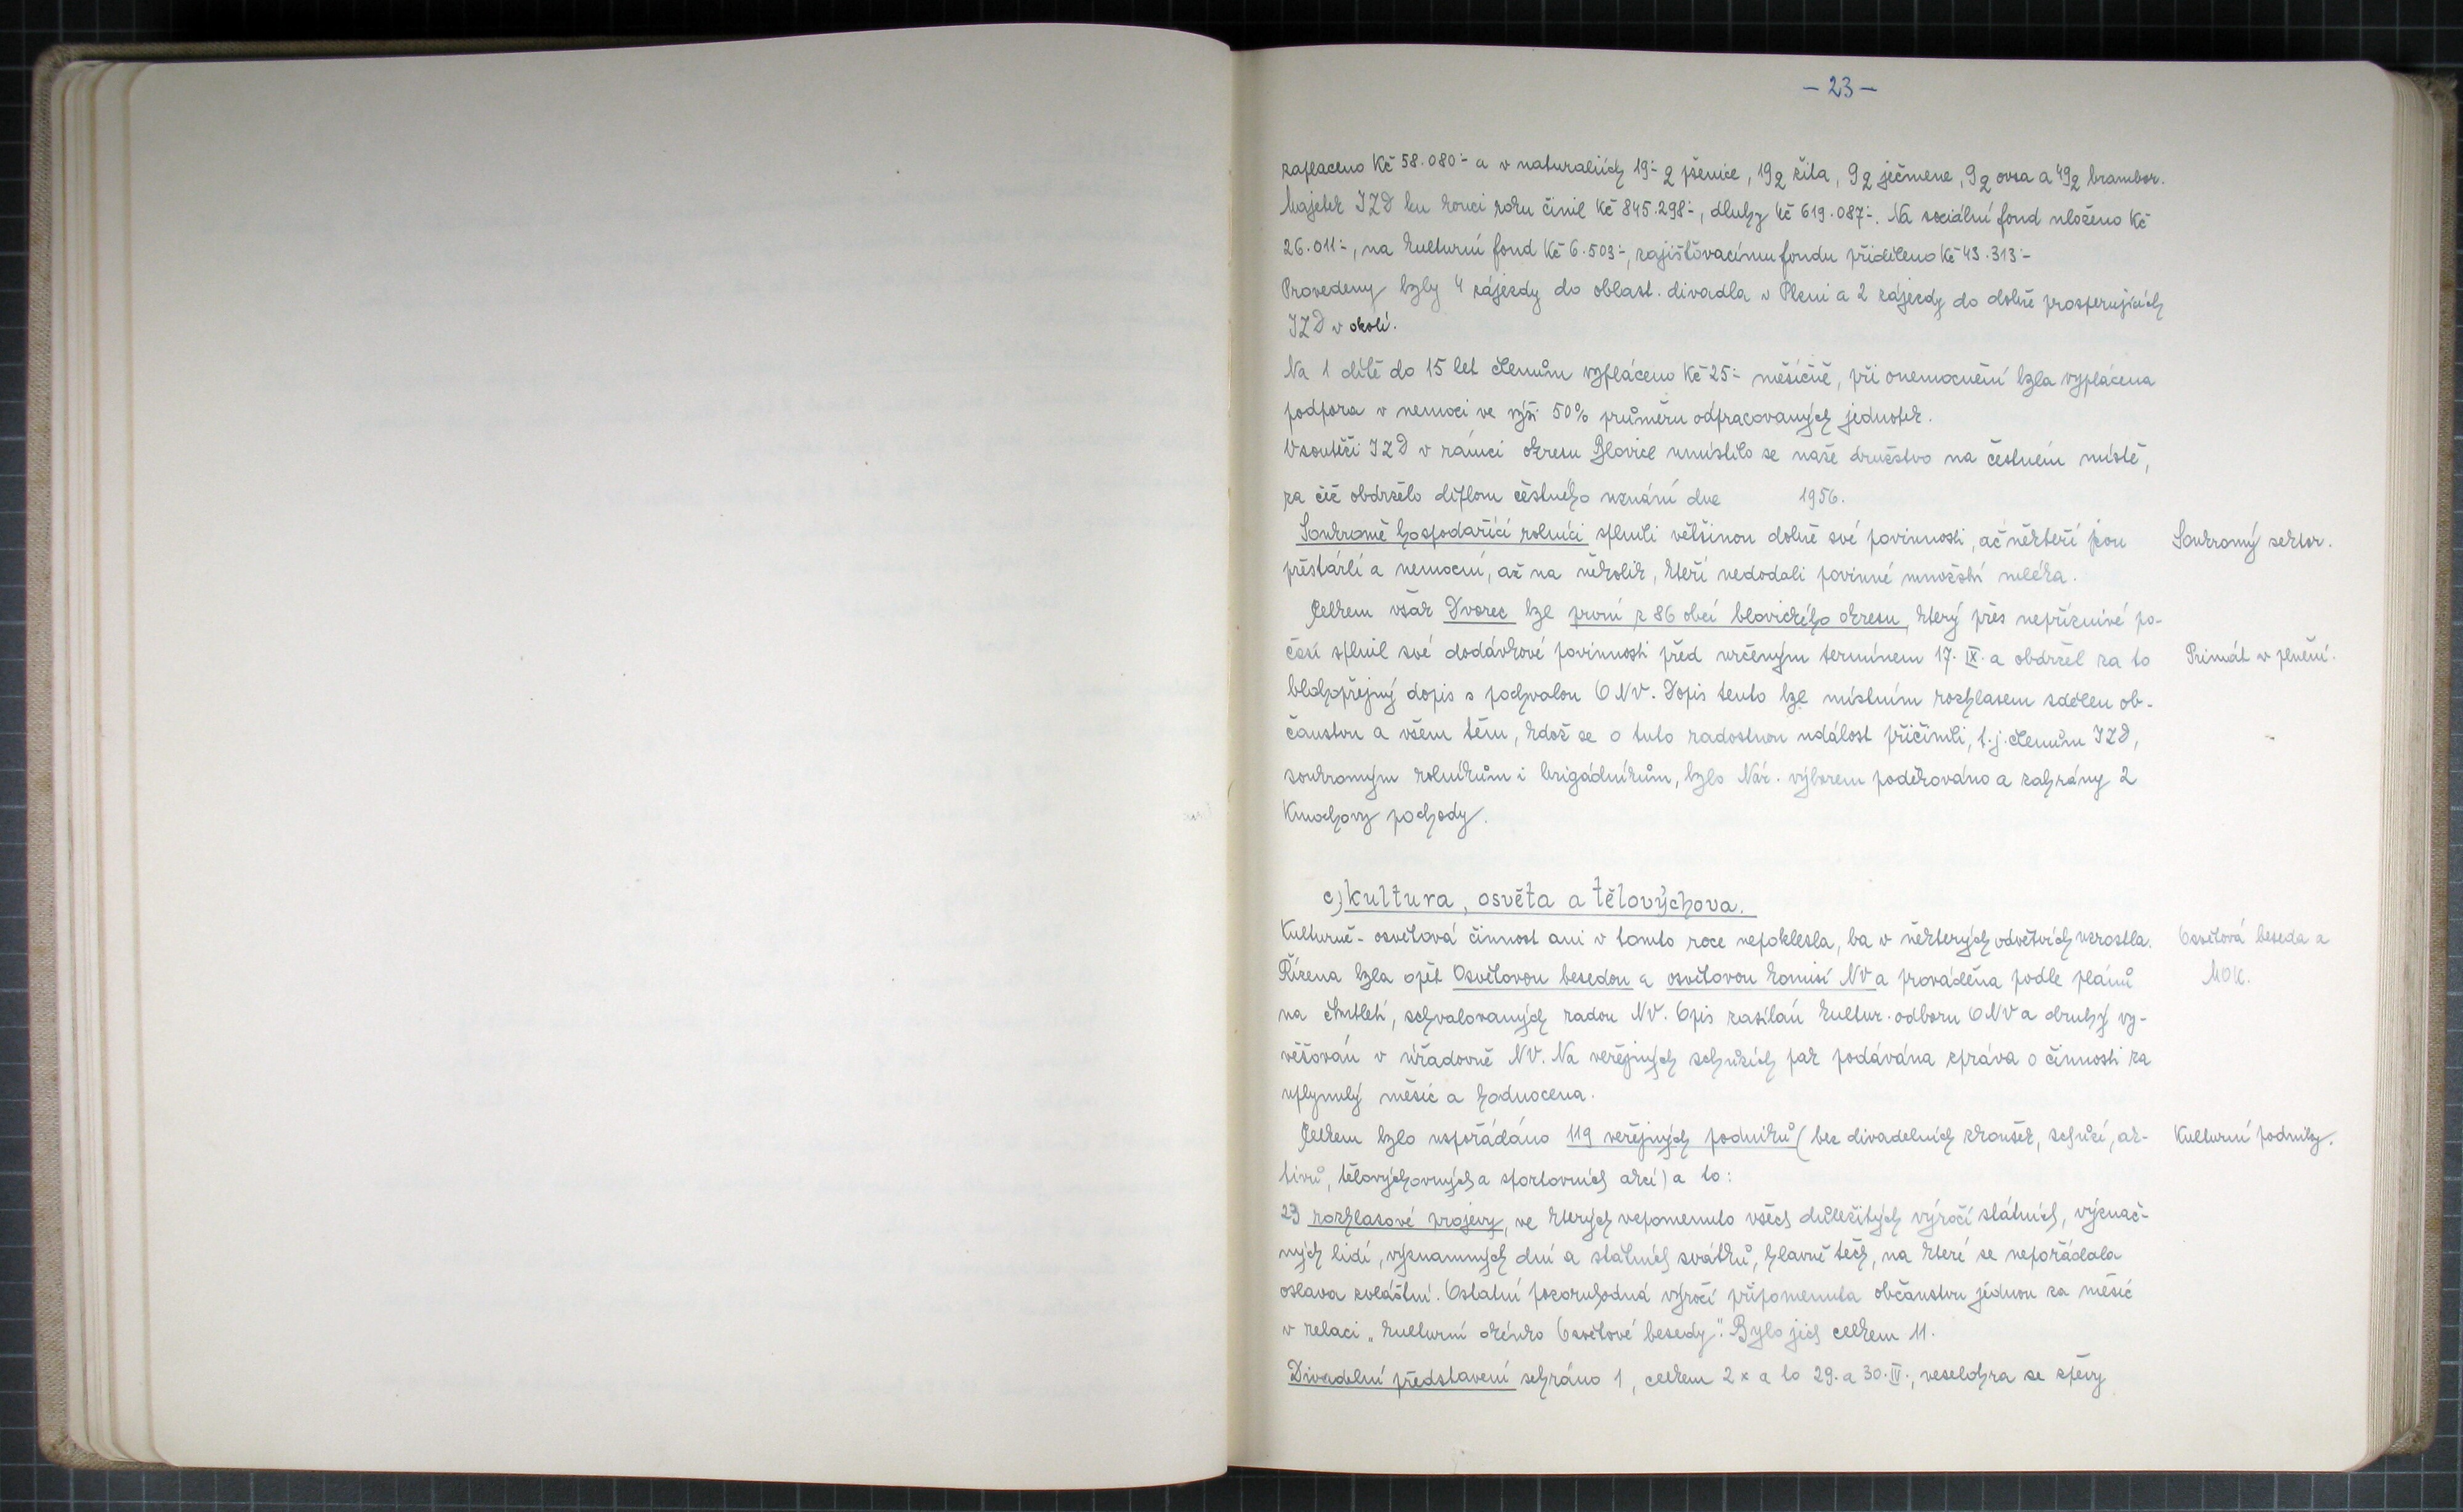 - 23 -
zaplaceno Kč 58.080·- a v naturaliích 19·- q pšenice, 19 q žita, 9 q ječmene, 9 q ovsa a 49 q brambor.
Majetek JZD ku konci roku činil Kč 845.298·-, dluhy Kč 619.087·-. Na sociální fond uloženo Kč
26.011·-, na kulturní fond Kč 6.503·-, zajišťovacímu fondu přiděleno Kč 43.313·-
Provedeny byly 4 zájezdy do oblast. divadla v Plzni a 2 zájezdy do dobře prosperujících
JZD v okolí.
Na 1 dítě do 15 let členům vypláceno Kč 25·- měsíčně, při onemocnění byla vyplácena
podpora v nemoci ve výši 50% průměru odpracovaných jednotek.
V soutěži JZD v rámci okresu Blovice umístilo se naše družstvo na čestném místě,
za což obdrželo diplom čestného uznání dne 1956.
Soukromě hospodařící rolníci splnili většinou dobře své povinnosti, ač někteří jsou
Soukromý sektor.
přestárlí a nemocní, až na několik, kteří nedodali povinné množství mléka.
Celkem však Dvorec byl první z 86 obcí blovického okresu, který přes nepříznivé po-
časí splnil své dodávkové povinnosti před určeným termínem 17. IX. a obdržel za to
Primát v plnění.
blahopřejný dopis s pochvalou ONV. Dopis tento byl místním rozhlasem sdělen ob-
čanstvu a všem těm, kdož se o tuto radostnou událost přičinili, t.j. členům JZD,
soukromým rolníkům i brigádníkům, bylo Nár. výborem poděkováno a zahrány 2
Kmochovy pochody.
c) Kultura, osvěta a tělovýchova.
Kulturně-osvětová činnost ani v tomto roce nepoklesla, ba v některých odvětvích vzrostla.
Osvětová beseda a
Řízena byla opět Osvětovou besedou a osvětovou komisí NV a prováděna podle plánů
MOK.
na čtvrtletí, schvalovaných radou NV. Opis zasílán kultur. odboru ONV a druhý vy-
věšován v úřadovně NV. Na veřejných schůzích pak podávána zpráva o činnosti za
uplynulý měsíc a hodnocena.
Celkem bylo uspořádáno 119 veřejných podniků (bez divadelních zkoušek, schůzí, ak-
Kulturní podniky.
tivů, tělovýchovných a sportovních akcí) a to:
23 rozhlasové projevy, ve kterých vzpomenuto všech důležitých výročí státních, význač-
ných lidí, významných dní a státních svátků, hlavně těch, na které se nepořádala
oslava zvláštní. Ostatní pozoruhodná výročí připomenuta občanstvu jednou za měsíc
v relaci „Kulturní okénko Osvětové besedy". Bylo jich celkem 11.
Divadelní představení sehráno 1, celkem 2x a to 29. a 30. IV., veselohra se zpěvy